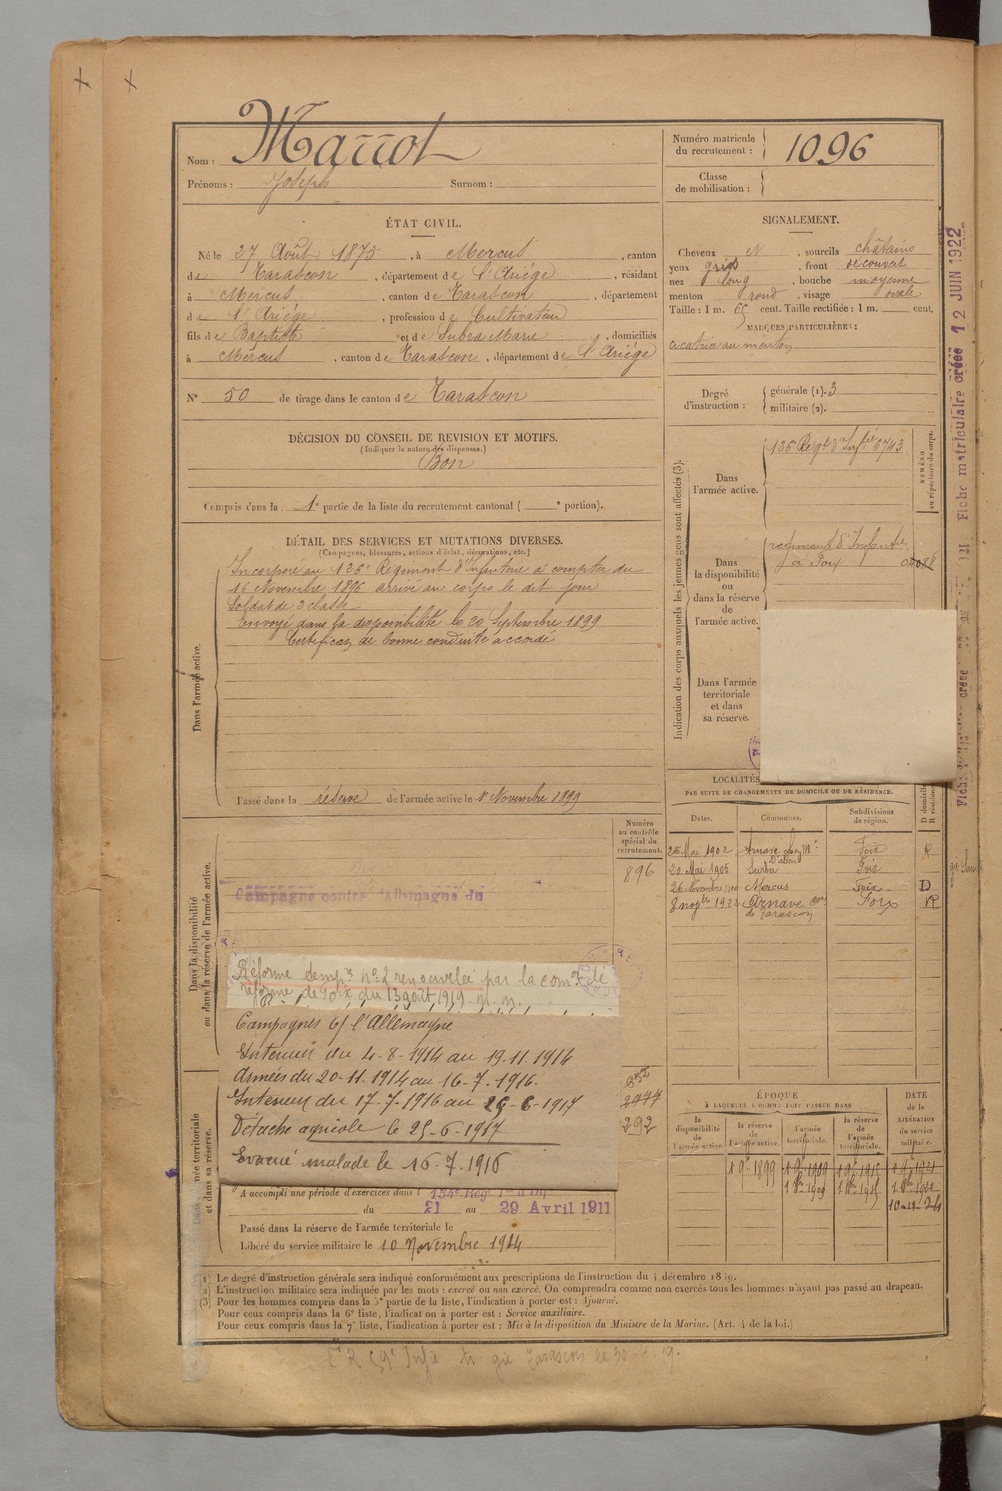 Nom : Marrot
Prénoms : Joseph Surnom :
Numéro matricule du recrutement : 1096
Classe de mobilisation :
ÉTAT CIVIL.
Né le 27 Août 1875, à Mercus, canton
de Tarascon, département de l'Ariége, résidant
à Mercus, canton de Tarascon, département
de l'Ariége, profession de Cultivateur
fils de Baptiste et de Subra Marie, domiciliés
à Mercus, canton de Tarascon, département de l'Ariége
N° 50 de tirage dans le canton de Tarascon
SIGNALEMENT.
Cheveux N, sourcils châtains
yeux gris, front découvert
nez long, bouche moyenne
menton rond, visage ovale
Taille : 1 m. 65 cent. Taille rectifiée : 1 m. cent.
MARQUES PARTICULIÈRES :
cicatrice au menton
Degré d'instruction : générale (1). 3
militaire (2).
DÉCISION DU CONSEIL DE REVISION ET MOTIFS.
(Indiquer la nature des dispenses.)
Bon
Compris dans la 1e partie de la liste du recrutement cantonal ( e portion).
DÉTAIL DES SERVICES ET MUTATIONS DIVERSES.
(Campagnes, blessures, actions d'éclat, décorations, etc.)
Dans l'armée active.
Incorporé au 126e Régiment d'Infanterie à compter du
16 Novembre 1896 arrivé au corps le dit jour
Soldat de 2 classe
Envoyé dans la disponibilité le 20 Septembre 1899
Certificat de bonne conduite accordé
Passé dans la réserve de l'armée active le 1r Novembre 1899
Indication des corps auxquels les jeunes gens sont affectés (3).
NUMÉRO au répertoire du corps.
Dans l'armée active.
126 Régt d'Infrie 6743
Dans la disponibilité ou dans la réserve de l'armée active.
régiment d'Infantie
à Foix
Dans l'armée territoriale et dans sa réserve.
Fiche matriculaire créée 12 JUIN 1922
LOCALITÉS
PAR SUITE DE CHANGEMENTS DE DOMICILE OU DE RÉSIDENCE.
Dates. Communes. Subdivisions de région. D domicile R résidence
25 Mai 1902 Arnave Foix R
20 Mai 1905 Surba Foix
26 Novembre 1910 Mercus Foix D
8 1922 Arnave con de Tarascon Foix R
Dans la disponibilité ou dans la réserve de l'armée active.
Numéro au contrôle spécial du recrutement.
896
Campagne contre l'Allemagne du
Réforme tempre n° 2 renouvelée par la comon de
réforme de Foix du 13 août 1919 n. m.
Campagnes c/ l'Allemagne
Intérieur du 4-8-1914 au 19.11.1914
Armées du 20-11-1914 au 16-7-1916.
Intérieur du 17-7-1916 au 25-6-1917
Détaché agricole le 25-6-1917
Evacué malade le 16.7.1916
292
A accompli une période d'exercices dans l
du 21 au 29 Avril 1911
Passé dans la réserve de l'armée territoriale le
Libéré du service militaire le 10 Novembre 1924
ÉPOQUE
À LAQUELLE L'HOMME DOIT PASSER DANS
la disponibilité de l'armée active. la réserve de l'armée active. l'armée territoriale. la réserve de l'armée territoriale.
DATE de la LIBÉRATION du service militaire.
1 9bre 1899
(1) Le degré d'instruction générale sera indiqué conformément aux prescriptions de l'instruction du 4 décembre 1889.
(2) L'instruction militaire sera indiquée par les mots : exercé ou non exercé. On comprendra comme non exercés tous les hommes n'ayant pas passé au drapeau.
(3) Pour les hommes compris dans la 5e partie de la liste, l'indication à porter est : Ajourné.
Pour ceux compris dans la 6e liste, l'indication à porter est : Service auxiliaire.
Pour ceux compris dans la 7e liste, l'indication à porter est : Mis à la disposition du Ministre de la Marine. (Art. 4 de la loi.)